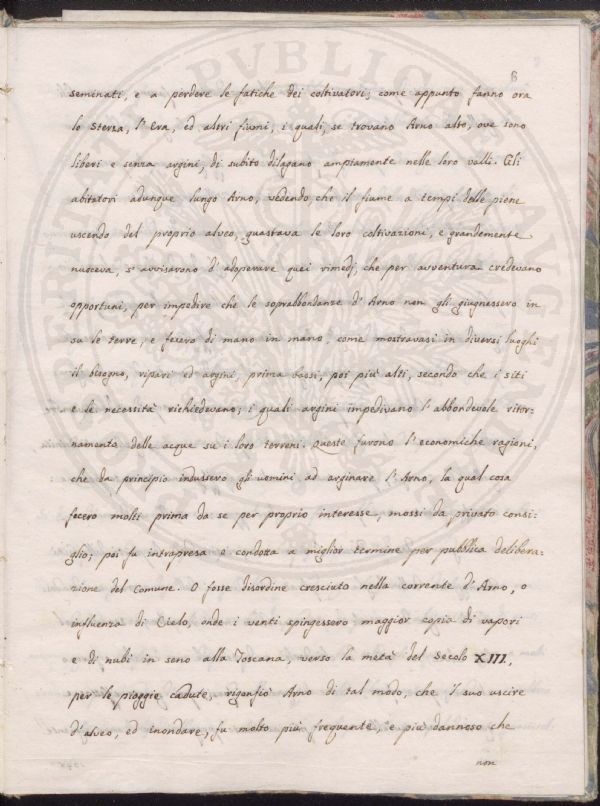 8
seminati, e a perdere le fatiche dei coltivatori; come appunto fanno ora
lo Sterza, l'Era, ed altri fiumi, i quali, se trovano Arno alto, ove sono
liberi e senza argini, di subito dilagano ampiamente nelle loro valli. Gli
abitatori adunque lungo Arno, vedendo che il fiume a tempi delle piene
uscendo del proprio alveo, guastava le loro coltivazioni, e grandemente
nuoceva, s'avvisarono d'adoperare quei rimedj, che per avventura credevano
opportuni, per impedire che le soprabbondanze d'Arno non gli giugnessero in
su le terre, e fecero di mano in mano, come mostravasi in diversi luoghi
il bisogno, ripari ed argini, prima bassi, poi più alti, secondo che i siti
e le necessità richiedevano; i quali argini impedivano l'abbondevole ritor=
namento delle acque su i loro terreni. Queste furono l'economiche ragioni,
che da principio indussero gli uomini ad arginare l'Arno, la qual cosa
fecero molti prima da se per proprio interesse, mossi da privato consi=
glio; poi fu intrapresa e condotta a miglior termine per pubblica delibera=
zione del Comune. O fosse disordine cresciuto nella corrente d'Arno, o
influenza di Cielo, onde i venti spingessero maggior copia di vapori
e di nubi in seno alla Toscana, verso la metà del secolo XIII,
per le pioggie cadute, rigonfiò Arno di tal modo, che 'l suo uscire
d'alveo, ed inondare, fu molto più frequente, e più dannoso che
non